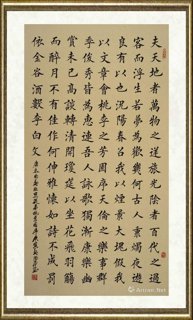 夫天地者萬物之逆旅光陰者百代之過
客而浮生若夢為歡幾何古人秉燭夜遊
良有以也況陽春召我以煙景大塊假我
以文章會桃李之芳園序天倫之樂事群
季俊秀皆為惠連吾人詠歌獨慚康樂幽
賞未已高談轉清開瓊筵以坐花飛羽觴
而醉月不有佳作何伸雅懷如詩不成罰
依金谷酒數李白文